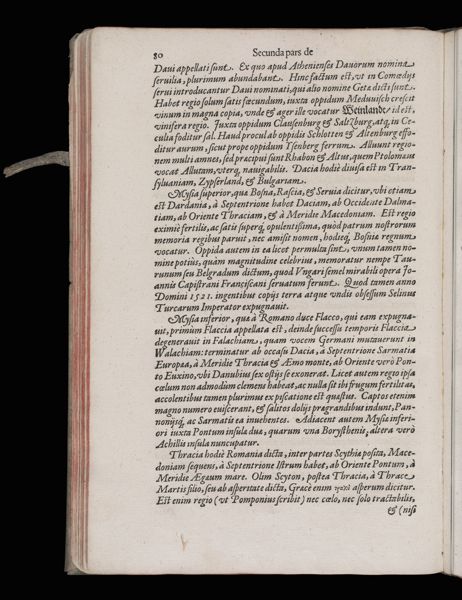 80 Secunda pars de
Daui appellati sunt. Ex quo apud Athenienses Dauorum nomina
seruilia, plurimum abundabant. Hinc factum est, vt in Comœdijs
serui introducantur Daui nominati, qui alio nomine Getæ dicti sunt.
Habet regio solum satis fœcundum, iuxta oppidum Meduuisch crescit
vinum in magna copia, vnde & ager ille vocatur Weinlandt / id est,
vinifera regio. Juxta oppidum Clausenburg & Saltzburg, atq, in Ce-
culia foditur sal. Haud procul ab oppidis Schlotten & Altenburg effo-
ditur aurum, sicut prope oppidum Ysenberg ferrum. Alluunt regio-
nem multi amnes, sed præcipui sunt Rhabon & Altus, quem Ptolomæus
vocat Allutam, vterq, nauigabilis. Dacia hodiè diuisa est in Tran-
syluaniam, Zypserland, & Bulgariam.
Mysia superior, quæ Bosna, Rascia, & Seruia dicitur, vbi etiam
est Dardania, à Septentrione habet Daciam, ab Occidente Dalma-
tiam, ab Oriente Thraciam, & à Meridie Macedoniam. Est regio
eximiè fertilis, ac satis superq, opulentissima, quòd patrum nostrorum
memoria regibus paruit, nec amisit nomen, hodieq, Bosniæ regnum
vocatur. Oppida autem in ea licet permulta sint, vnum tamen no-
mine potiùs, quàm magnitudine celebrius, memoratur nempe Tau-
runum seu Belgradum dictum, quod Vngari semel mirabili opera Jo-
annis Capistrani Franciscani seruatum ferunt. Quod tamen anno
Domini 1521. ingentibus copijs terra atque vndis obsessum Selinus
Turcarum Imperator expugnauit.
Mysia inferior, quæ à Romano duce Flacco, qui eam expugna-
uit, primùm Flaccia appellata est, deinde successu temporis Flaccia
degenerauit in Falachiam, quam vocem Germani mutauerunt in
Walachiam: terminatur ab occasu Dacia, à Septentrione Sarmatia
Europæa, à Meridie Thracia & Æmo monte, ab Oriente verò Pon-
to Euxino, vbi Danubius sex ostijs se exonerat. Licet autem regio ipsa
cœlum non admodùm clemens habeat, ac nulla sit ibi frugum fertilitas,
accolentibus tamen plurimus ex piscatione est quæstus. Captos etenim
magno numero euiscerant, & salitos dolijs prægrandibus indunt, Pan-
nonijsq, ac Sarmatis ea inuehentes. Adiacent autem Mysiæ inferi-
ori iuxta Pontum insulæ duæ, quarum vna Borysthenis, altera verò
Achillis insula nuncupatur.
Thracia hodiè Romania dicta, inter partes Scythiæ posita, Mace-
doniam sequens, à Septentrione Istrum habet, ab Oriente Pontum, à
Meridie Ægæum mare. Olim Scyton, postea Thracia, à Thrace
Martis filio, seu ab asperitate dicta, Græcè enim asperum dicitur.
Est enim regio (vt Pomponius scribit) nec cœlo, nec solo tractabilis,
& (nisi